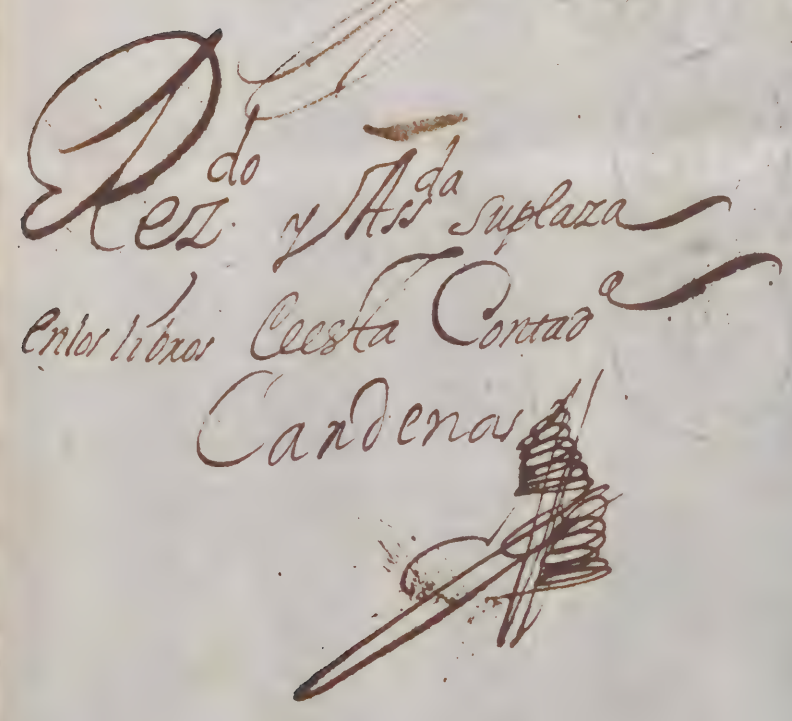 Rez.do y Ass.da su plaza
en los libros de esta Contad.a
Cardenas